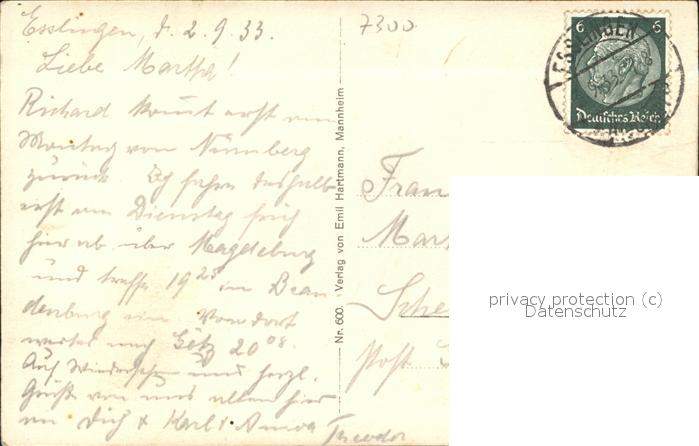 Esslingen, d. 2.9.33.
Liebe Martha!
Richard kommt erst am
Montag von Nürnberg
zurück. Ich fahre deshalb
erst am Dienstag früh
hier ab über Magdeburg
und treffe 19 25 in Bran
denburg ein. Von dort
weiter nach Götz 20 08.
Auf Wiedersehen und herzl.
Grüße von uns allen hier
an Dich & Karl & Anna
Theodor
7300
ESSLINGEN
6 6
Deutsches Reich
Nr. 600. Verlag von Emil Hartmann, Mannheim
Frau
Mar
Sche
Post
privacy protection (c)
Datenschutz